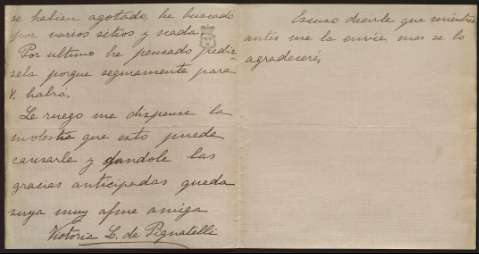 se habían agotado, he buscado
por varios sitios y nada
Por ultimo he pensado pedir
sela porque seguramente para
V. habrá.
Le ruego me dispense la
molestia que esto puede
causarle y dandole las
gracias anticipadas queda
suya muy afme amiga
Victoria L. de Pignatelli
Escuso decirle que mientras
antes me la envíe mas se lo
agradeceré,